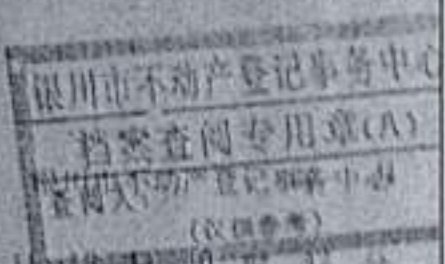 银川市不动产登记事务中心
档案查阅专用章(A)
查阅人
不动产登记事务中心
(仅供参考)